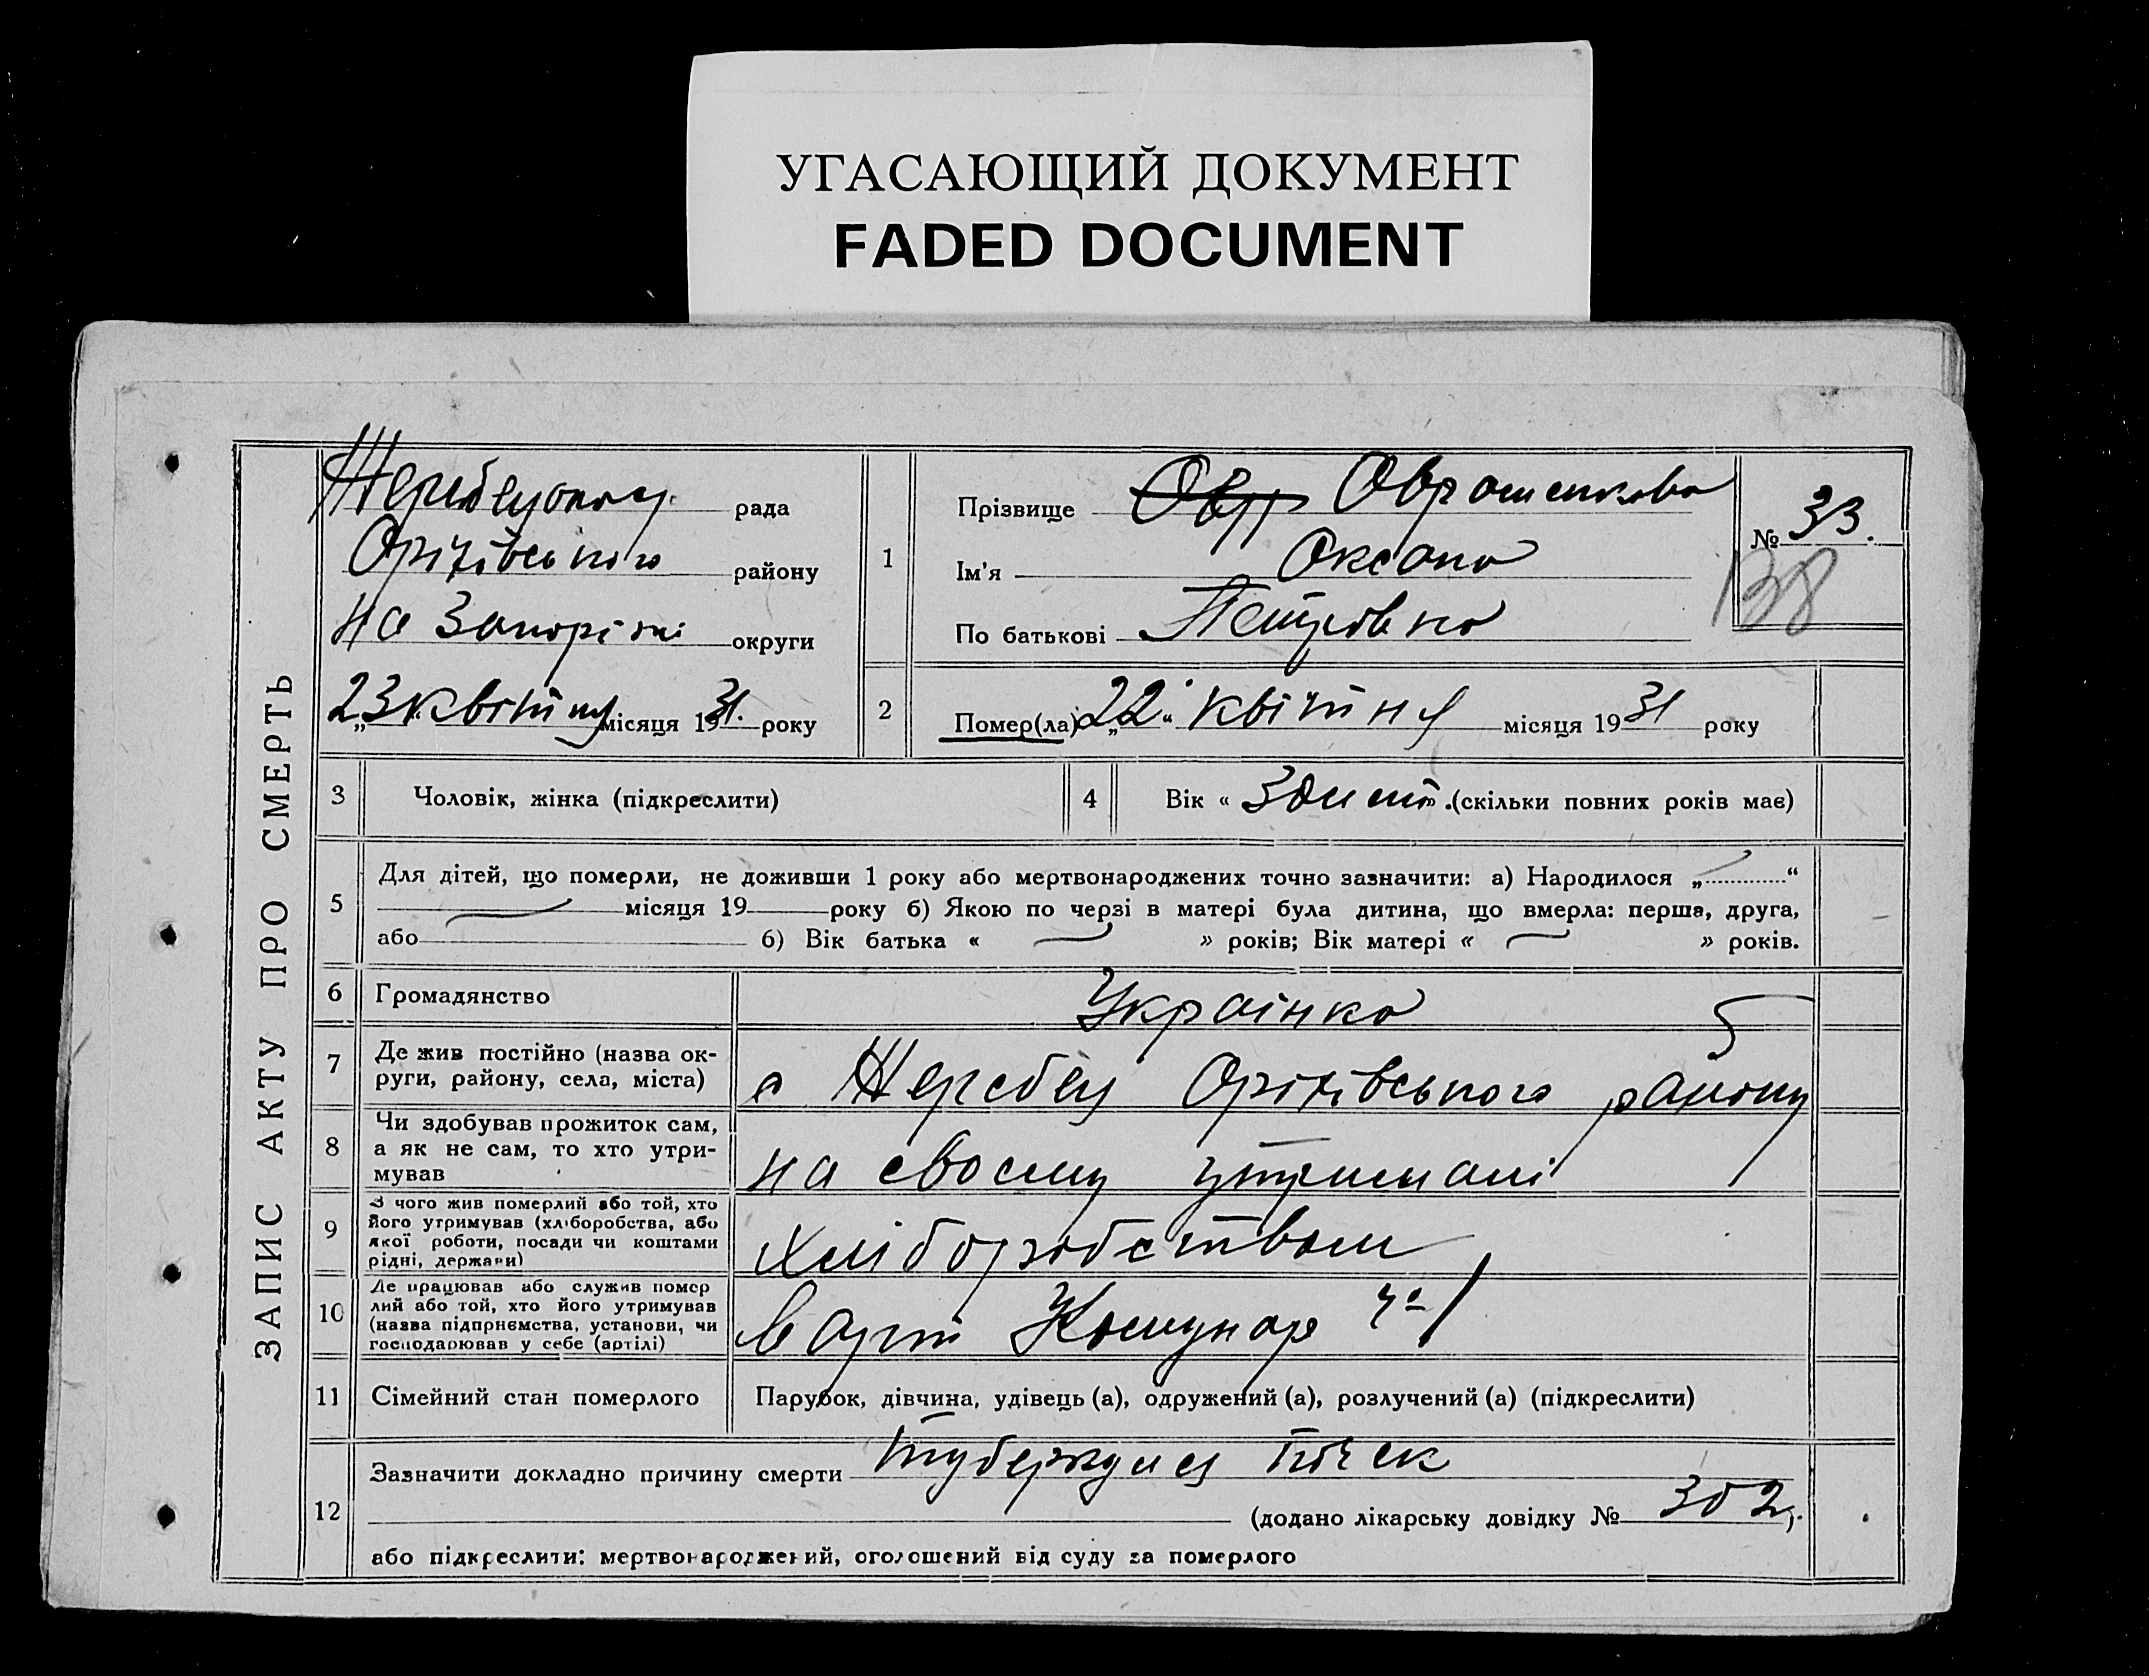 УГАСАЮЩИЙ ДОКУМЕНТ
FADED DOCUMENT
ЗАПИС АКТУ ПРО СМЕРТЬ
рада
Оріхівського району
на Запоріжі округи
23 квітня місяця 1931. року
1
Прізвище Овр Оврашенкова
Ім'я Оксана
По батькові Петровна
№ 33.
138
2
Помер(ла) „22“ квітня місяця 1931 року
3 Чоловік, жінка (підкреслити)
4 Вік « » (скільки повних років має)
5 Для дітей, що померли, не доживши 1 року або мертвонароджених точно зазначити: а) Народилося „ “
місяця 19 року б) Якою по черзі в матері була дитина, що вмерла: перша, друга,
або б) Вік батька « » років; Вік матері « » років.
6 Громадянство Украінка
7 Де жив постійно (назва ок-
руги, району, села, міста)
с Жеребец Оріхівського району
8 Чи здобував прожиток сам,
а як не сам, то хто утри-
мував
на своєму утримані
9 З чого жив померлий або той, хто
його утримував (хліборобства, або
якої роботи, посади чи коштами
рідні, держави)
хліборобством
10 Де працював або служив помер
лий або той, хто його утримував
(назва підприємства, установи, чи
господарював у себе (артілі)
в арт Комунар
11 Сімейний стан померлого Парубок, дівчина, удівець (а), одружений (а), розлучений (а) (підкреслити)
12 Зазначити докладно причину смерти туберкулез почек
(додано лікарську довідку № 302
або підкреслити: мертвонароджений, оголошений від суду за померлого